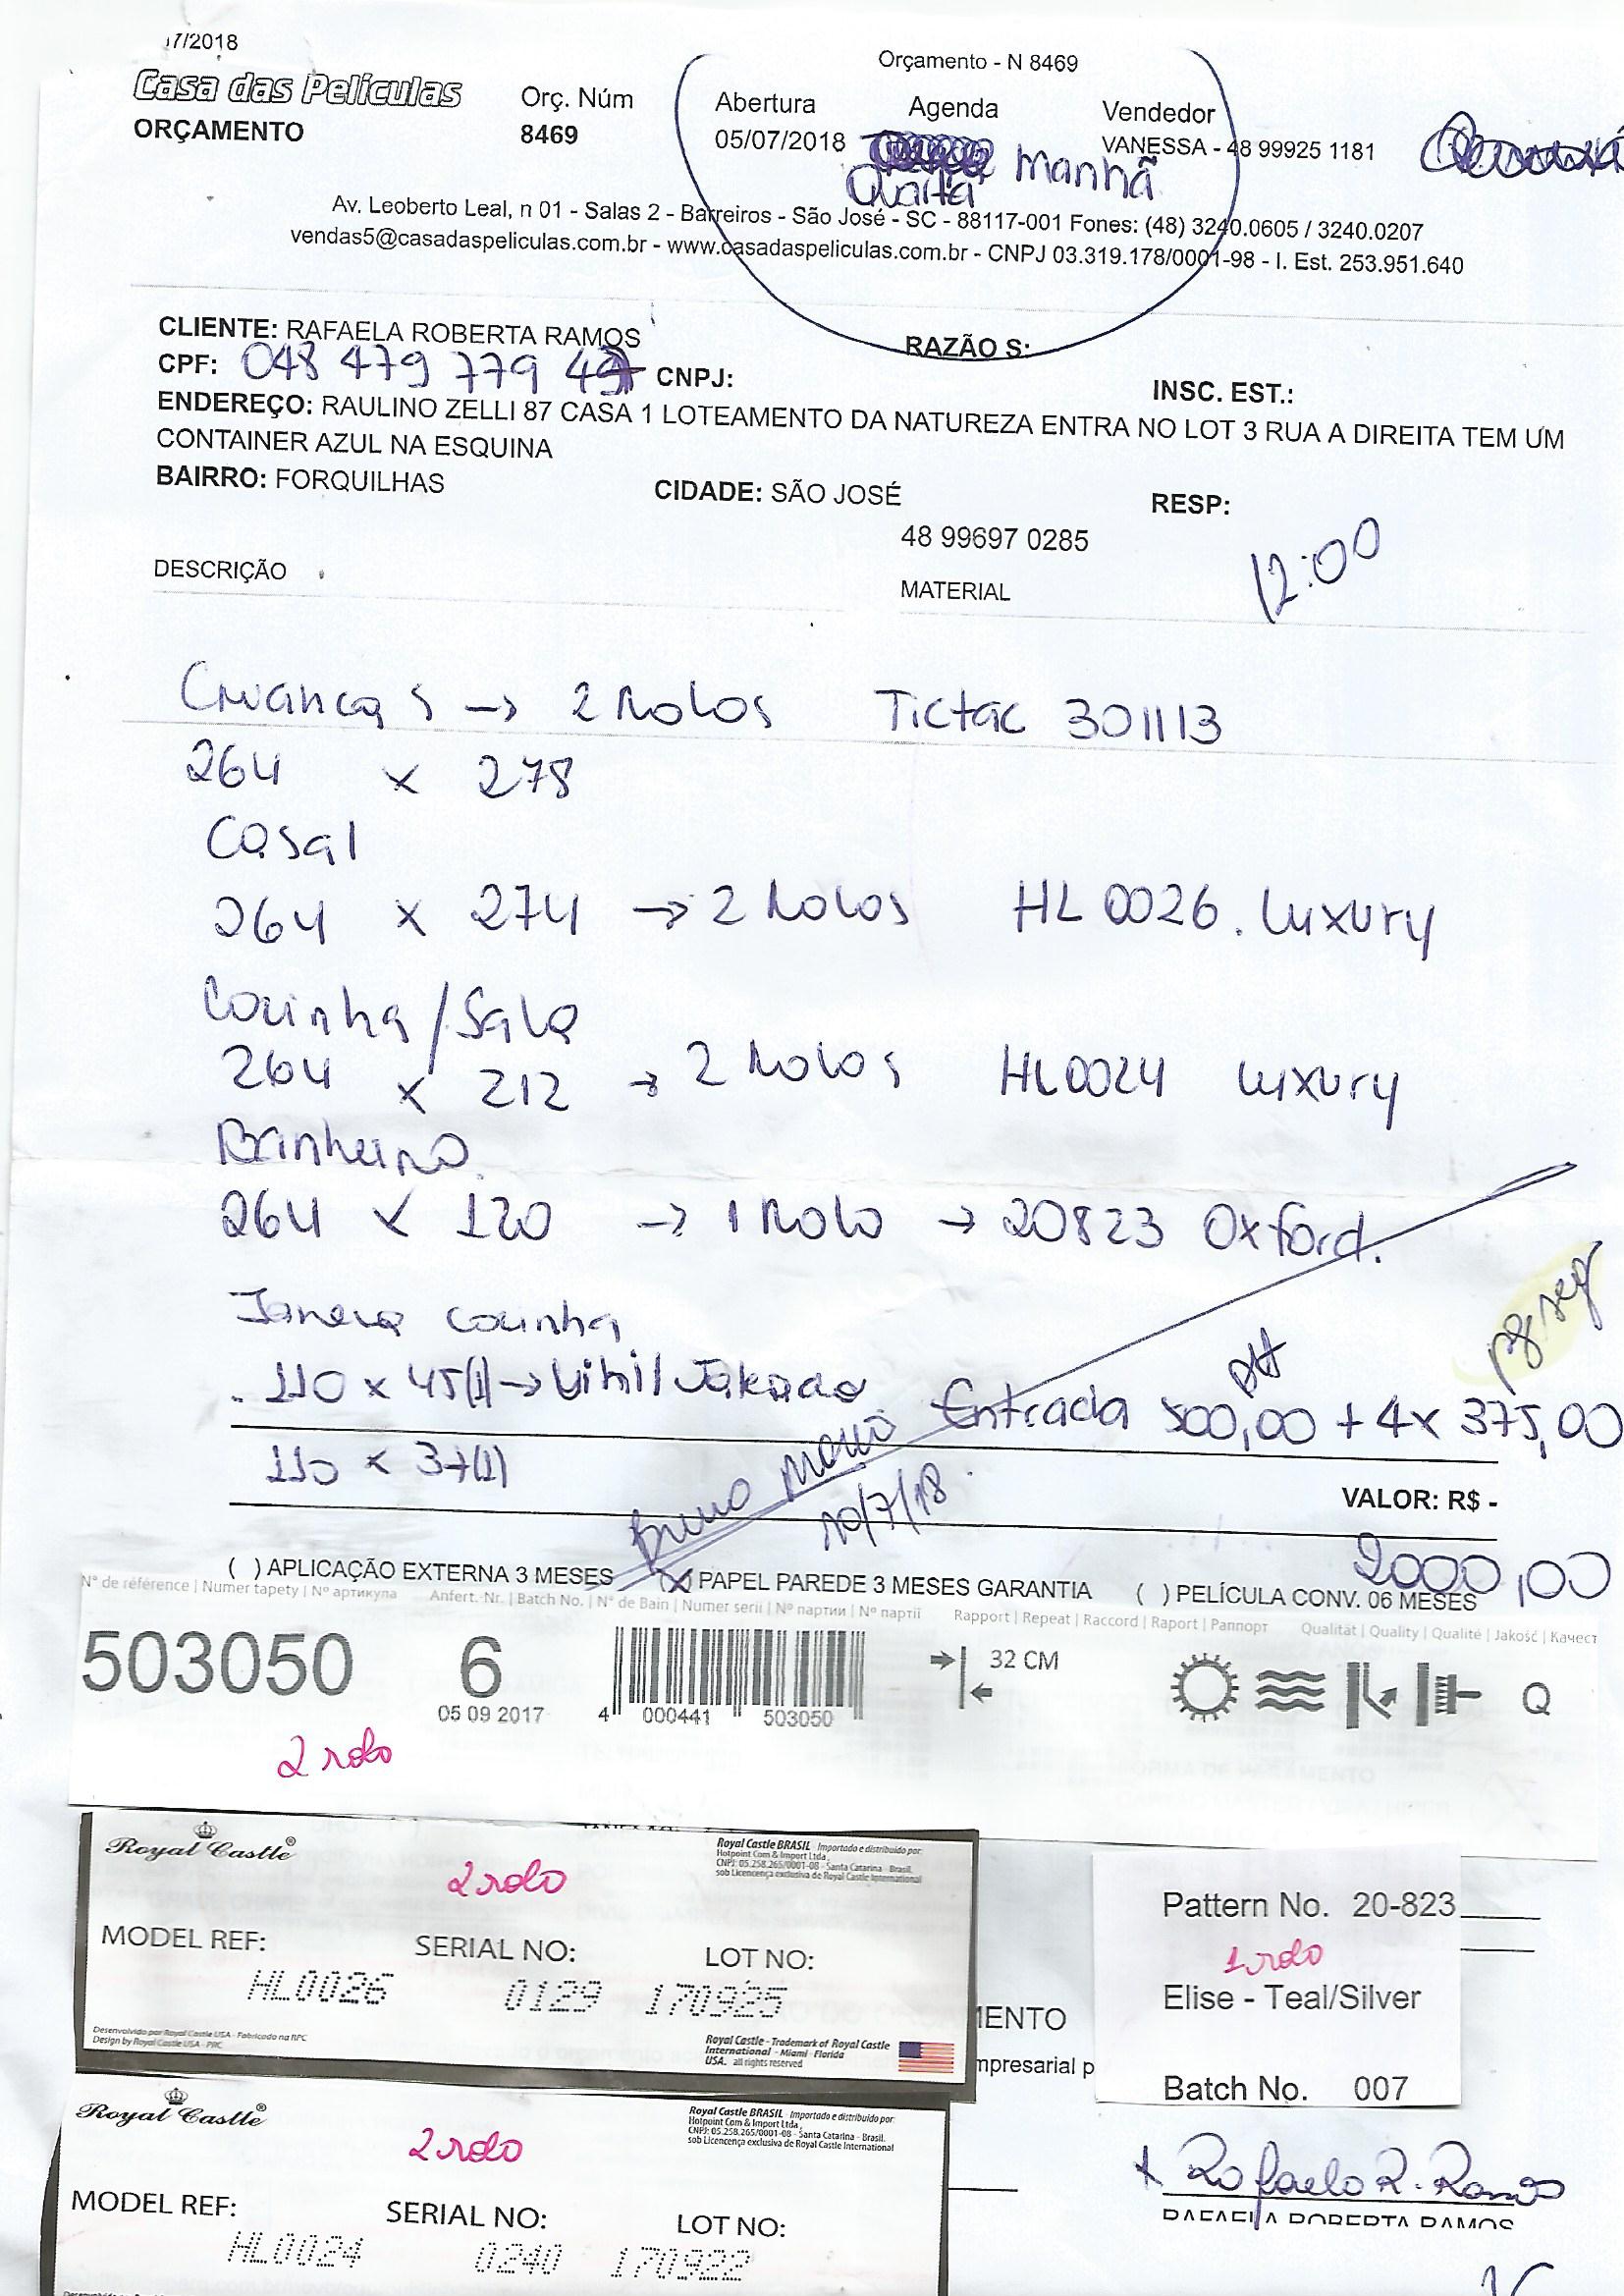 17/2018
Orçamento - N 8469
Casa das Películas
ORÇAMENTO
Orç. Núm
8469
Abertura
05/07/2018
Agenda
Quarta Manhã
Vendedor
VANESSA - 48 99925 1181
Av. Leoberto Leal, n 01 - Salas 2 - Barreiros - São José - SC - 88117-001 Fones: (48) 3240.0605 / 3240.0207
vendas5@casadaspeliculas.com.br - www.casadaspeliculas.com.br - CNPJ 03.319.178/0001-98 - I. Est. 253.951.640
CLIENTE: RAFAELA ROBERTA RAMOS
RAZÃO S:
CPF: 048 479 779 CNPJ:
INSC. EST.:
ENDEREÇO: RAULINO ZELLI 87 CASA 1 LOTEAMENTO DA NATUREZA ENTRA NO LOT 3 RUA A DIREITA TEM UM
CONTAINER AZUL NA ESQUINA
BAIRRO: FORQUILHAS
CIDADE: SÃO JOSÉ
RESP:
48 99697 0285
12:00
DESCRIÇÃO
MATERIAL
Crianças → 2 Rolos Tictac 301113
264 x 278
Casal
264 x 274 → 2 Rolos HL 0026. Luxury
Cozinha/Sala
264 x 212 → 2 Rolos HL0024 Luxury
Banheiro.
264 x 120 → 1 Rolo → 20823 Oxford.
Janela cozinha
110 x 45(1) → Vinil Jateado
Entrada 500,00 + 4x 375,00
110 x 37(1)
10/7/18
VALOR: R$ -
2000,00
( ) APLICAÇÃO EXTERNA 3 MESES (X) PAPEL PAREDE 3 MESES GARANTIA ( ) PELÍCULA CONV. 06 MESES
N° de référence | Numer tapety | Nº артикула Anfert.-Nr. | Batch No. | N° de Bain | Numer serii | Nº партии | Nº партії Rapport | Repeat | Raccord | Raport | Раппорт Qualität | Quality | Qualité | Jakość | Качест
503050
6
05 09 2017
4 000441 503050
32 CM
Q
2 rolo
Royal Castle®
2 rolo
Royal Castle BRASIL - Importado e distribuído por:
Hotpoint Com & Import Ltda
CNPJ: 05.258.265/0001-08 - Santa Catarina - Brasil.
sob Licencença exclusiva de Royal Castle International
MODEL REF:
SERIAL NO:
LOT NO:
HL0026 0129 170925
Desenvolvido por Royal Castle USA - Fabricado na RPC
Design by Royal Castle USA - PRC
Royal Castle - Trademark of Royal Castle
International - Miami - Florida
USA. all rights reserved
Pattern No. 20-823
1 rolo
Elise - Teal/Silver
Batch No. 007
MENTO
mpresarial p
Royal Castle®
2 rolo
Royal Castle BRASIL - Importado e distribuído por:
Hotpoint Com & Import Ltda
CNPJ: 05.258.265/0001-08 - Santa Catarina - Brasil.
sob Licencença exclusiva de Royal Castle International
MODEL REF:
SERIAL NO:
LOT NO:
HL0024 0240 170922
x Rafaela R. Ramos
RAFAELA ROBERTA RAMOS